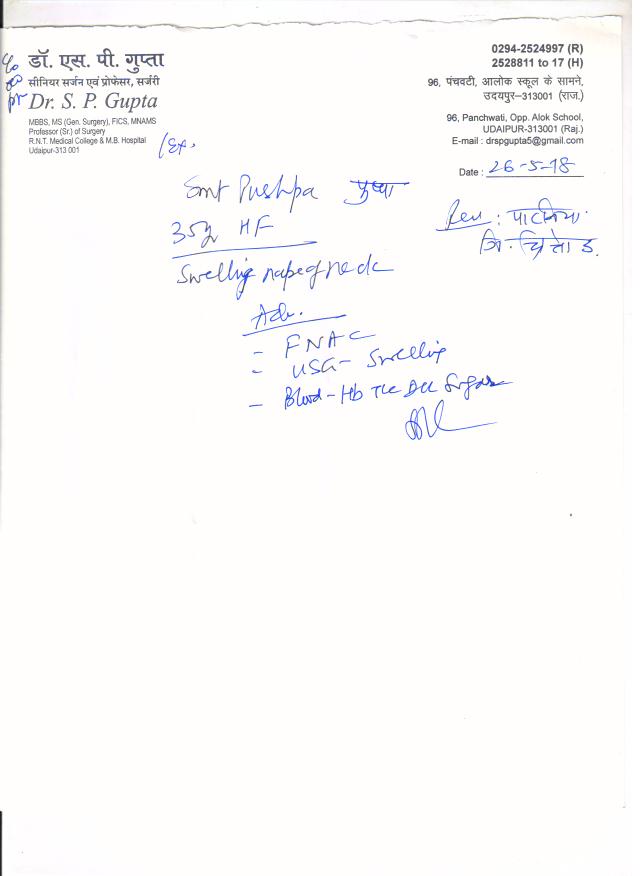 डॉ. एस. पी. गुप्ता
सीनियर सर्जन एवं प्रोफेसर, सर्जरी
Dr. S. P. Gupta
MBBS, MS (Gen. Surgery), FICS, MNAMS
Professor (Sr.) of Surgery
R.N.T. Medical College & M.B. Hospital
Udaipur-313 001
0294-2524997 (R)
2528811 to 17 (H)
96, पंचवटी, आलोक स्कूल के सामने,
उदयपुर–313001 (राज.)
96, Panchwati, Opp. Alok School,
UDAIPUR-313001 (Raj.)
E-mail : drspgupta5@gmail.com
Date : 26-5-18
Smt Pushpa पुष्पा
35y HF
Swelling nape of neck
Adv.
- FNAC
- USG - Swelling
- Blood - Hb TLC DLC Sugar